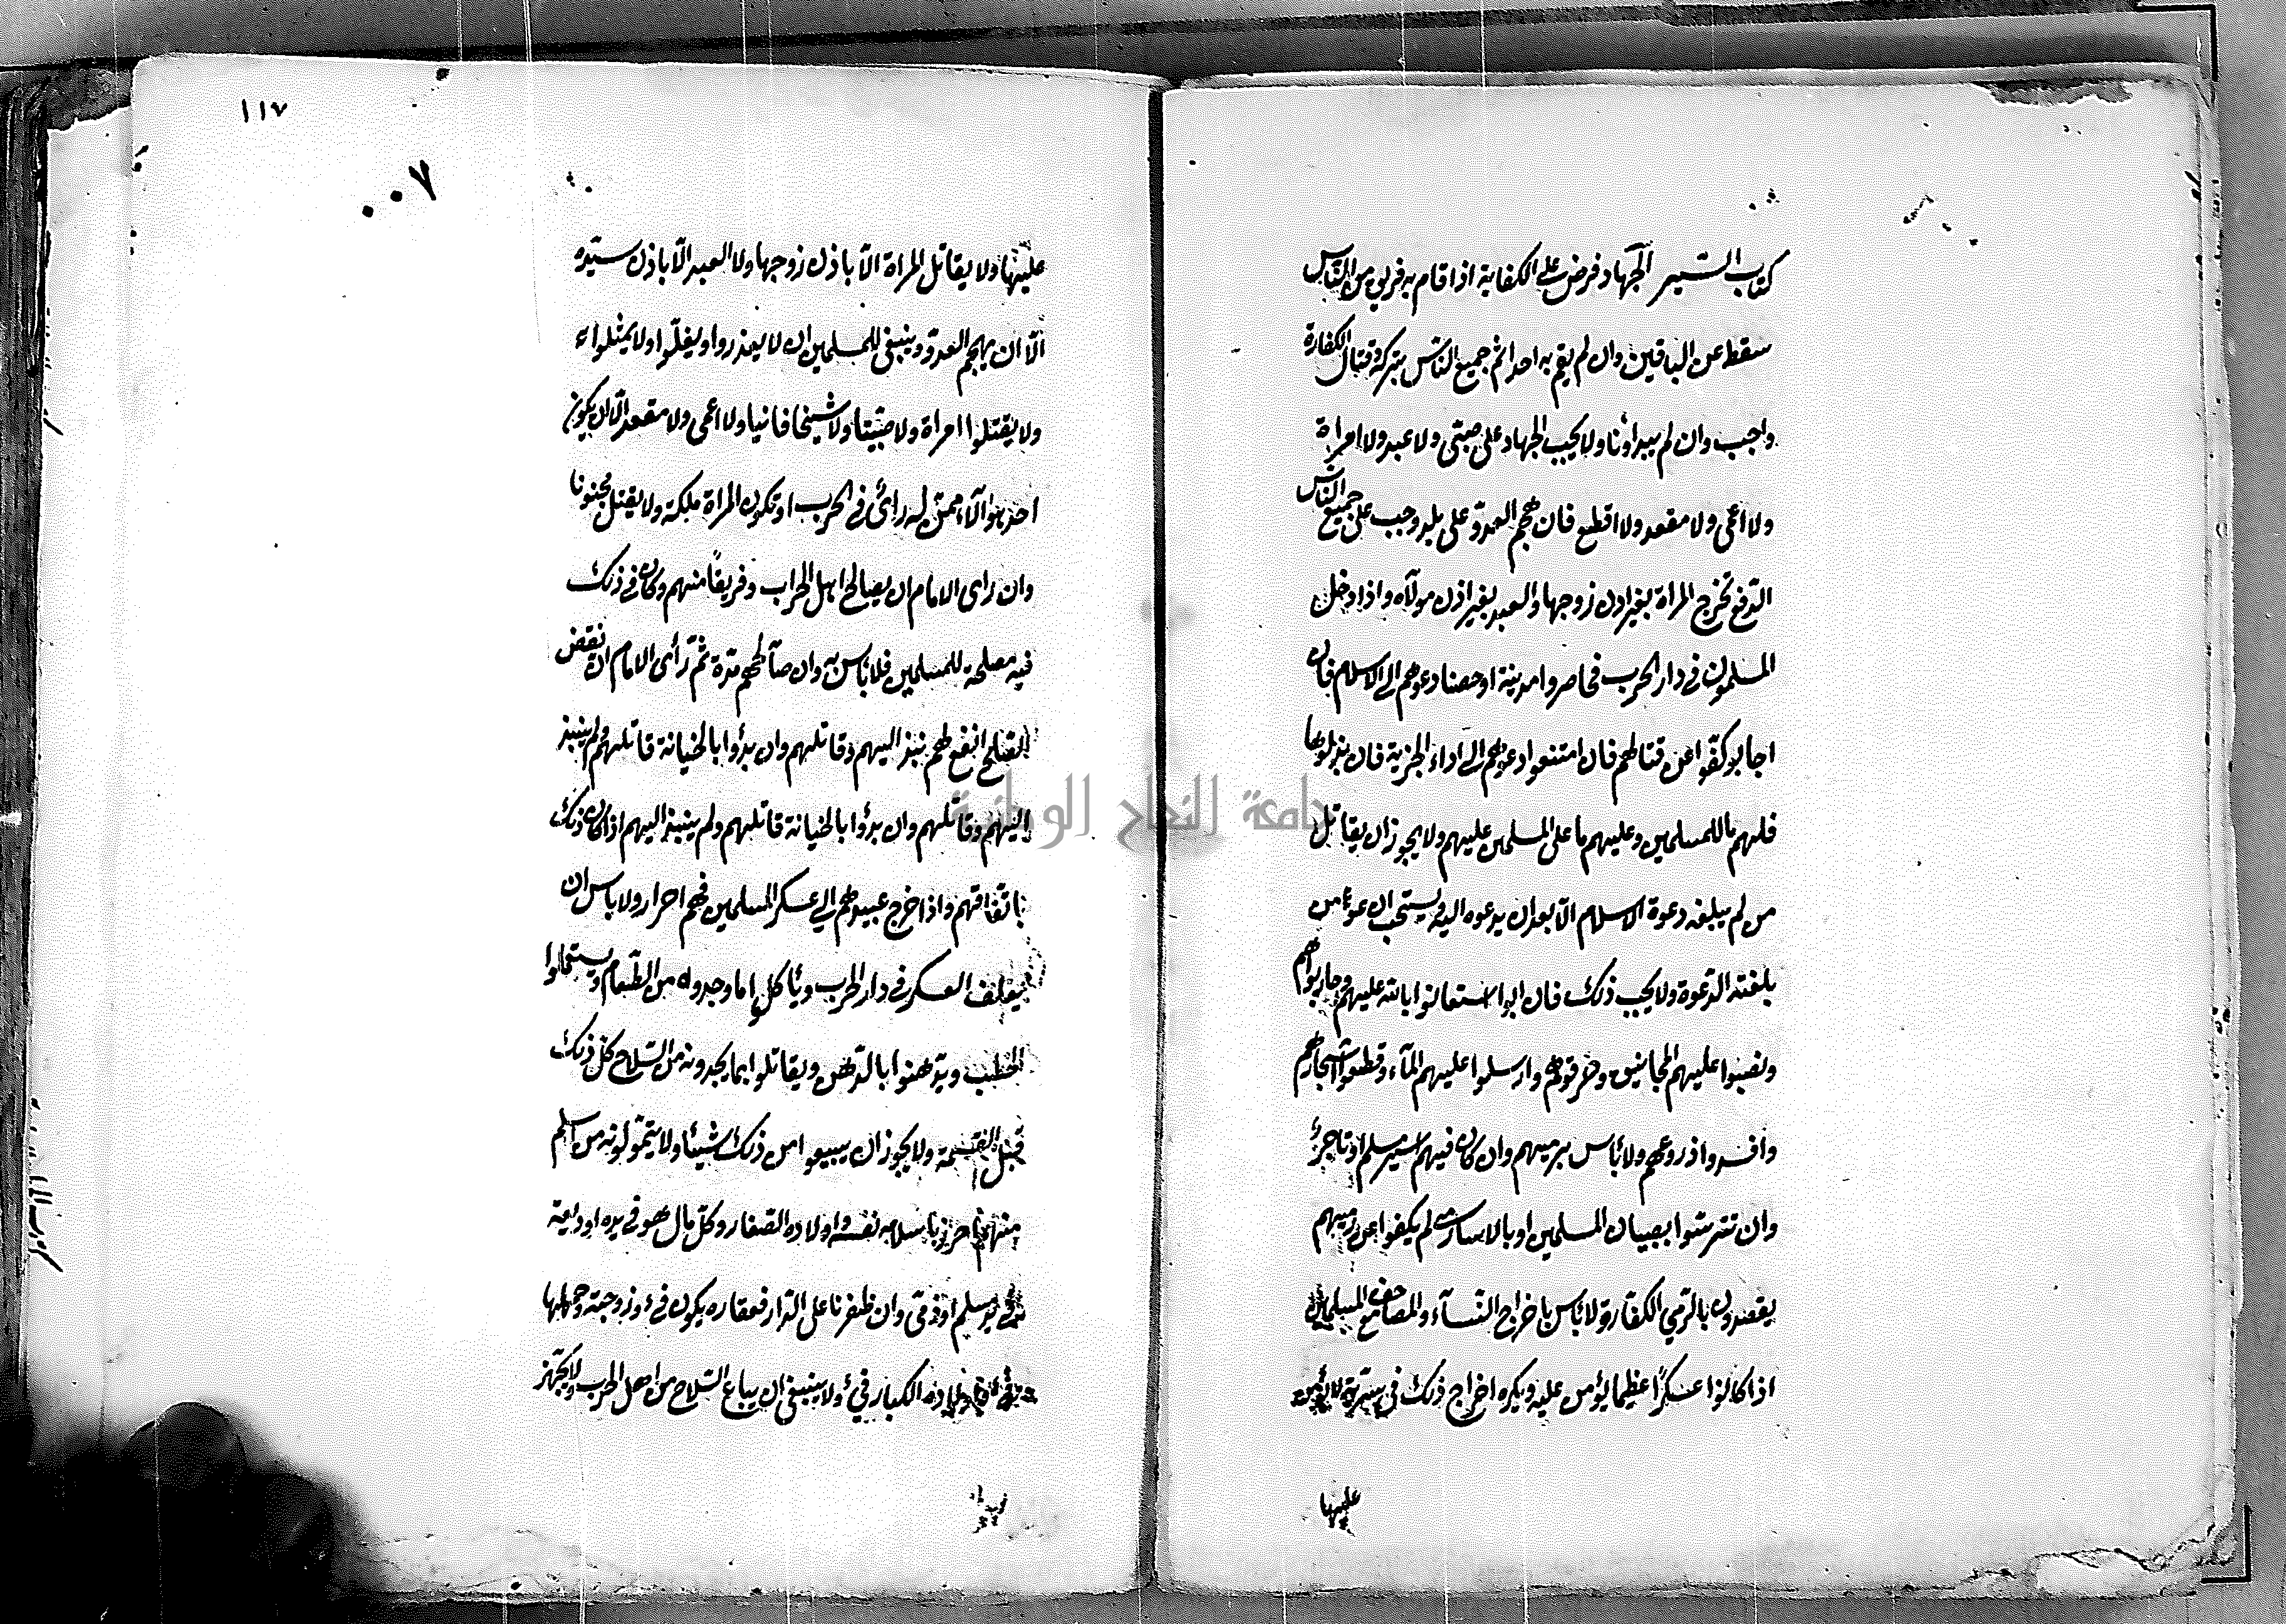 كتاب السير الجهاد فرض على الكفاية اذا قام به فريق من الناس
سقط عن الباقين وان لم يقم به احد اثم جميع الناس بتركه وقتال الكفارة
واجب وان لم يبدأونا ولا يجب الجهاد على صبي ولا عبد ولا امراة
ولا اعمى ولا مقعد ولا اقطع فان هجم العدو على بلد وجب على جميع الناس
الدفع تخرج المراة بغير اذن زوجها والعبد بغير اذن مولاه واذا دخل
المسلمون في دار الحرب فحاصروا مدينة او حصنا دعوهم الى الاسلام فان
اجابو كفوا عن قتالهم فان امتنعوا دعوهم الى اداء الجزية فان بذلوها
فلهم ما للمسلمين وعليهم ما على المسلمين عليهم ولا يجوز ان يقاتل
من لم يبلغه دعوة الاسلام الا بعد ان يدعوه اليه ويستحب ان من
بلغته الدعوة ولا يجب ذلك فان ابوا استعانوا بالله عليهم وحاربوهم
ونصبوا عليهم المجانيق وحرقوهم وارسلوا عليهم المآء وقطعوا اشجارهم
وافسدوا ذروعهم ولا بأس برميهم وان كان فيهم اسير مسلم او تاجر
وان تترستوا بصبيان المسلمين او بالاسارى لم يكفوا عن رميهم
يقصدون بالرمي الكفارة ولا بأس باخراج النسآء والمصاحف مع المسلمين
اذا كانوا عسكرا عظيما يؤمن عليه ويكره اخراج ذلك في سرية لا يؤمن
عليها
١١٧
٠٠٧
عليها ولا يقاتل المراة الا باذن زوجها ولا العبد الا باذن سيده
الا ان يهجم العدو وينبغي للمسلمين ان لا يعذروا ويغلوا ولا يمثلوا
ولا يقتلوا امراة ولا صبيا ولا شيخا فانيا ولا اعمى ولا مقعد الا ان يكون
احد هوالآء ممن له رائ في الحرب او تكون المراة ملكة ولا يقتل مجنونا
وان راى الامام ان يصالح اهل الحراب وفريقا منهم وكان في ذلك
فيه مصلحة للمسلمين فلا بأس به وان صآلحهم مدة ثم رأى الامام ان نقض
الصلح انفع لهم نبذ اليهم وقاتلهم وان بدؤا بالخيانة قاتلهم ولم ينبذ
اليهم وقاتلهم وان بدؤا بالخيانة قاتلهم ولم ينبذ اليهم اذا كان ذلك
باتفاقهم واذا خرج عبيدهم الى عسكر المسلمين فهم احرار ولا باس ان
يعلف العسكر في دار الحرب ويأكلوا ما وجدوه من الطعام ويستعملوا
الحطب ويدهنوا بالدهن ويقاتلوا بما يجدونه من السلاح كل ذلك
قبل القسمة ولا يجوز ان يبيعوا من ذلك شيئا ولا يتمولونه من اسلم
منهم احرز باسلامه نفسه واولاده الصغار وكل مال هو في يده او وديعة
في يد مسلم او ذمي وان ظفرنا على الدار فعقاره يكون فئ وزوجته وحملها
فئ واولاده الكبار فئ ولا ينبغي ان يباع السلاح من اهل الحرب ولا يجهز
جامعة النجاح الوطنية